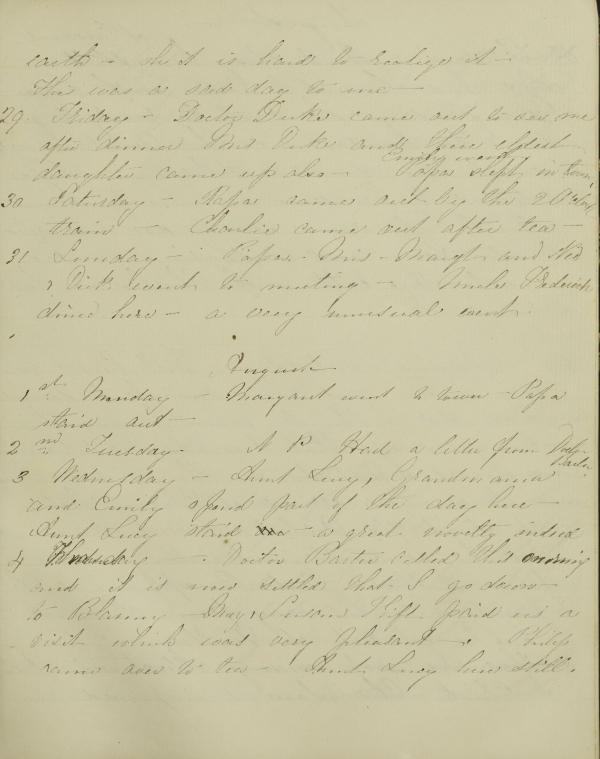 earth - it is hard to realize it -
This was a sad day to me -
29 Friday - Doctor Duke came out to see me
after dinner Mrs Duke and their eldest
daughter came up also - Papa slept in town
Emily went
30 Saturday - Papa came out by the 2 O'clock
train - Charlie came out after tea -
31 Sunday - Papa - Mrs - Margt and Ned
& Dick went to meeting - Uncle Frederick
dined here - a very unusual event.
August
1st Monday - Margaret went to town - Papa
staid out -
2nd Tuesday - N P Had a letter from
3 Wednesday - Aunt Lucy, Grandmama
and Emily spend part of the day here -
Aunt Lucy staid - a great novelty indeed
4 Thursday - Doctor called this morning
and it is now settled that I go down
to - Susan paid us a
visit which was very pleasant. Philip
came over to tea - Aunt Lucy here still.